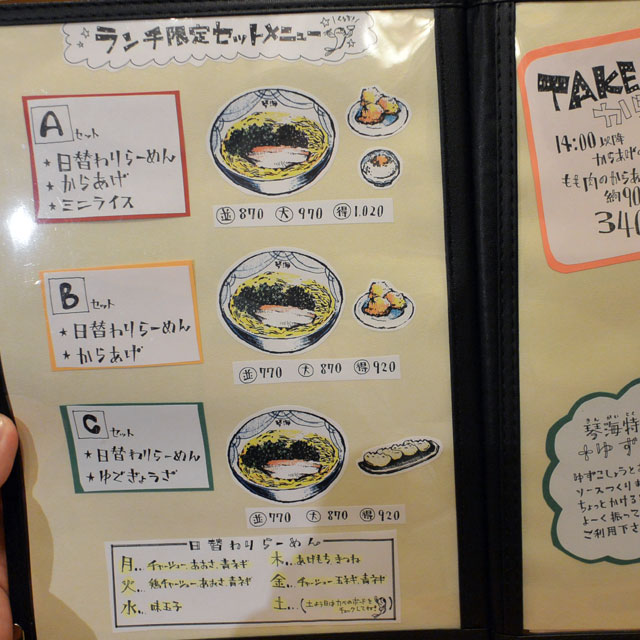 ランチ限定セットメニュー
Aセット
★日替わりらーめん
★からあげ
★ミニライス
並870 大970 得1.020
Bセット
★日替わりらーめん
★からあげ
並770 大870 得920
Cセット
★日替わりらーめん
★ゆでぎょうざ
並770 大870 得920
日替わりらーめん
月… チャーシュー、あおさ、青ネギ
火… 鶏チャーシュー、あおさ、青ネギ
水… 味玉子
木… あげもち、きつね
金… チャーシュー、玉ネギ、青ネギ
土…
TAKE
14:00以降
もも肉のからあ
約90
340
琴海特
ゆず
ゆずこしょうと
ソースつくりま
ちょっとかける
よーく振って
ご利用下さ